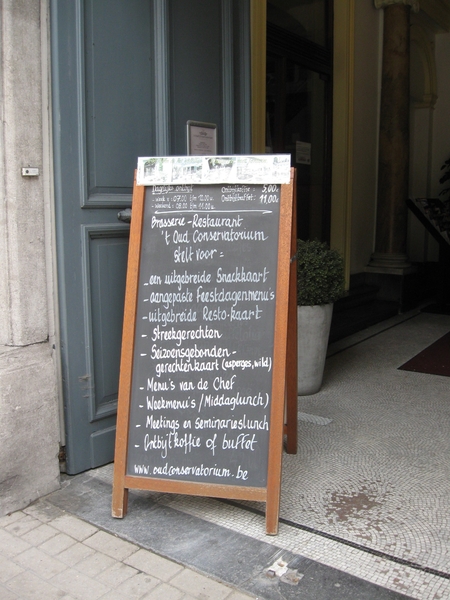 Dagelijks ontbijt
Ontbijtkoffie: 5,00
- week: 07.00 t/m 10.00 u
Ontbijtbuffet: 11,00
- weekend: 08.00 t/m 11.00 u
Brasserie-Restaurant
't Oud Conservatorium
stelt voor:
- een uitgebreide Snackkaart
- aangepaste Feestdagenmenu's
- uitgebreide Resto-kaart
- Streekgerechten
- Seizoensgebonden-
gerechtenkaart (asperges, wild)
- Menu's van de Chef
- Weekmenu's / Middaglunch)
- Meetings en seminarieslunch
- Ontbijtkoffie of buffet
www.oudconservatorium.be